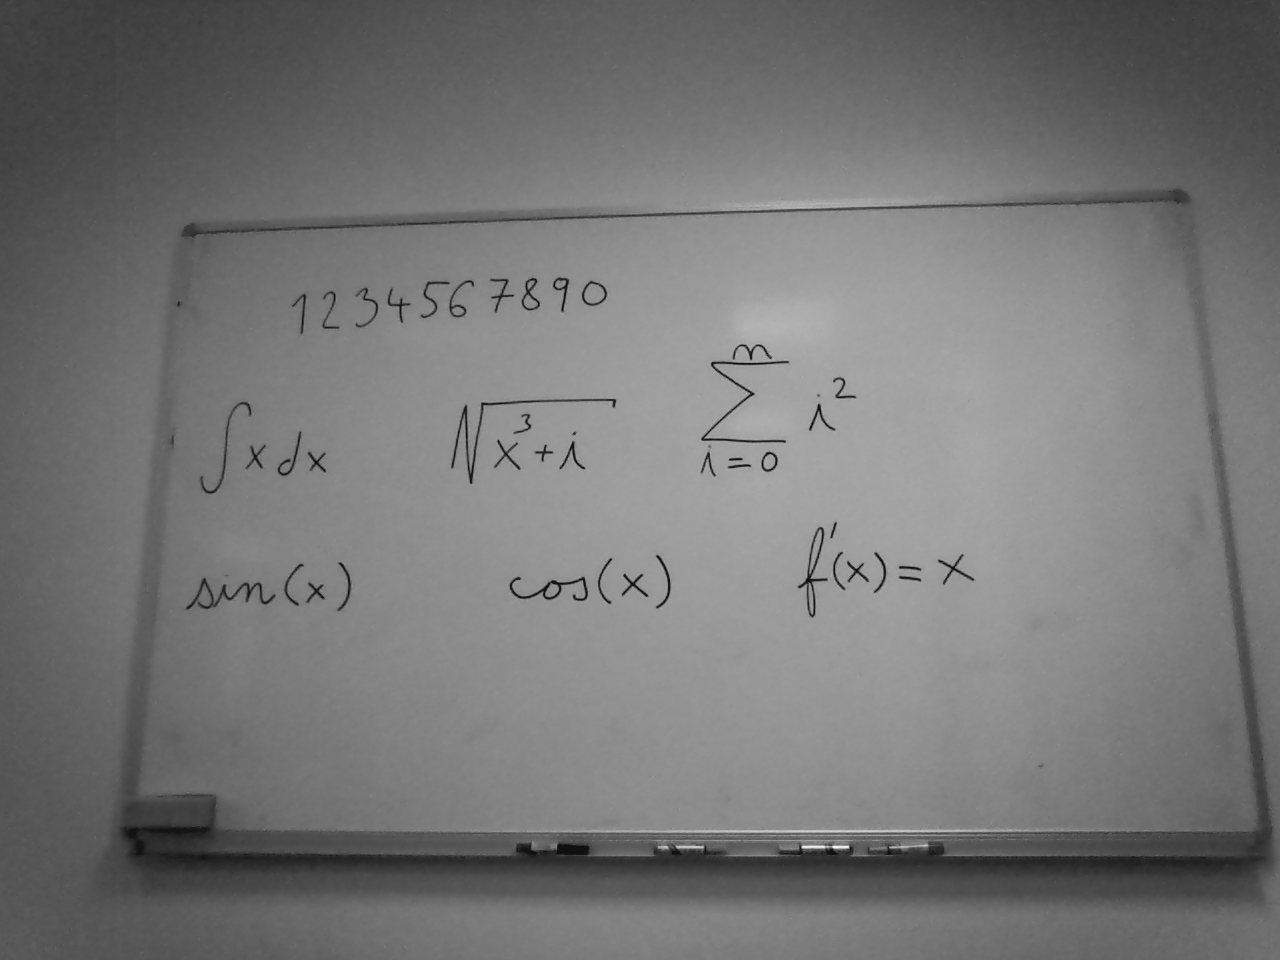 1234567890
∫x dx √(x³+i) ∑_{i=0}^{n} i²
sin(x) cos(x) f'(x) = x